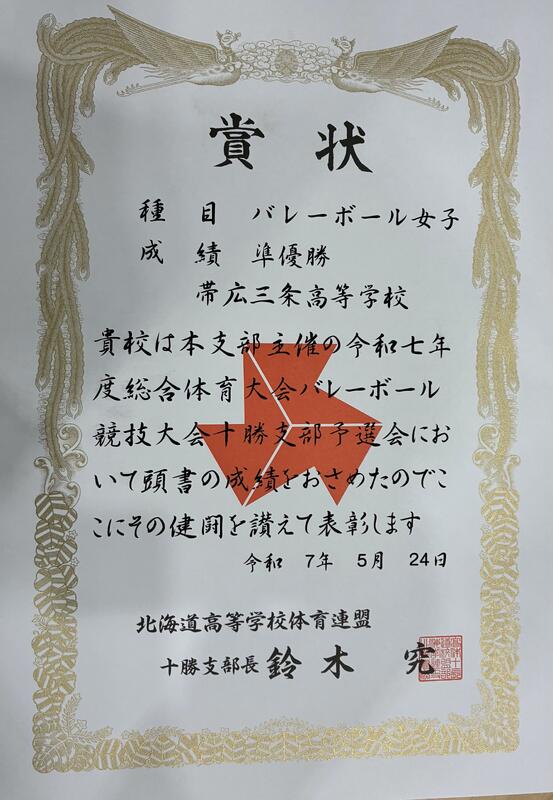 賞状
種目 バレーボール女子
成績 準優勝
帯広三条高等学校
貴校は本支部主催の令和七年
度総合体育大会バレーボール
競技大会十勝支部予選会にお
いて頭書の成績をおさめたのでこ
こにその健闘を讃えて表彰します
令和 7年 5月 24日
北海道高等学校体育連盟
十勝支部長 鈴木 究